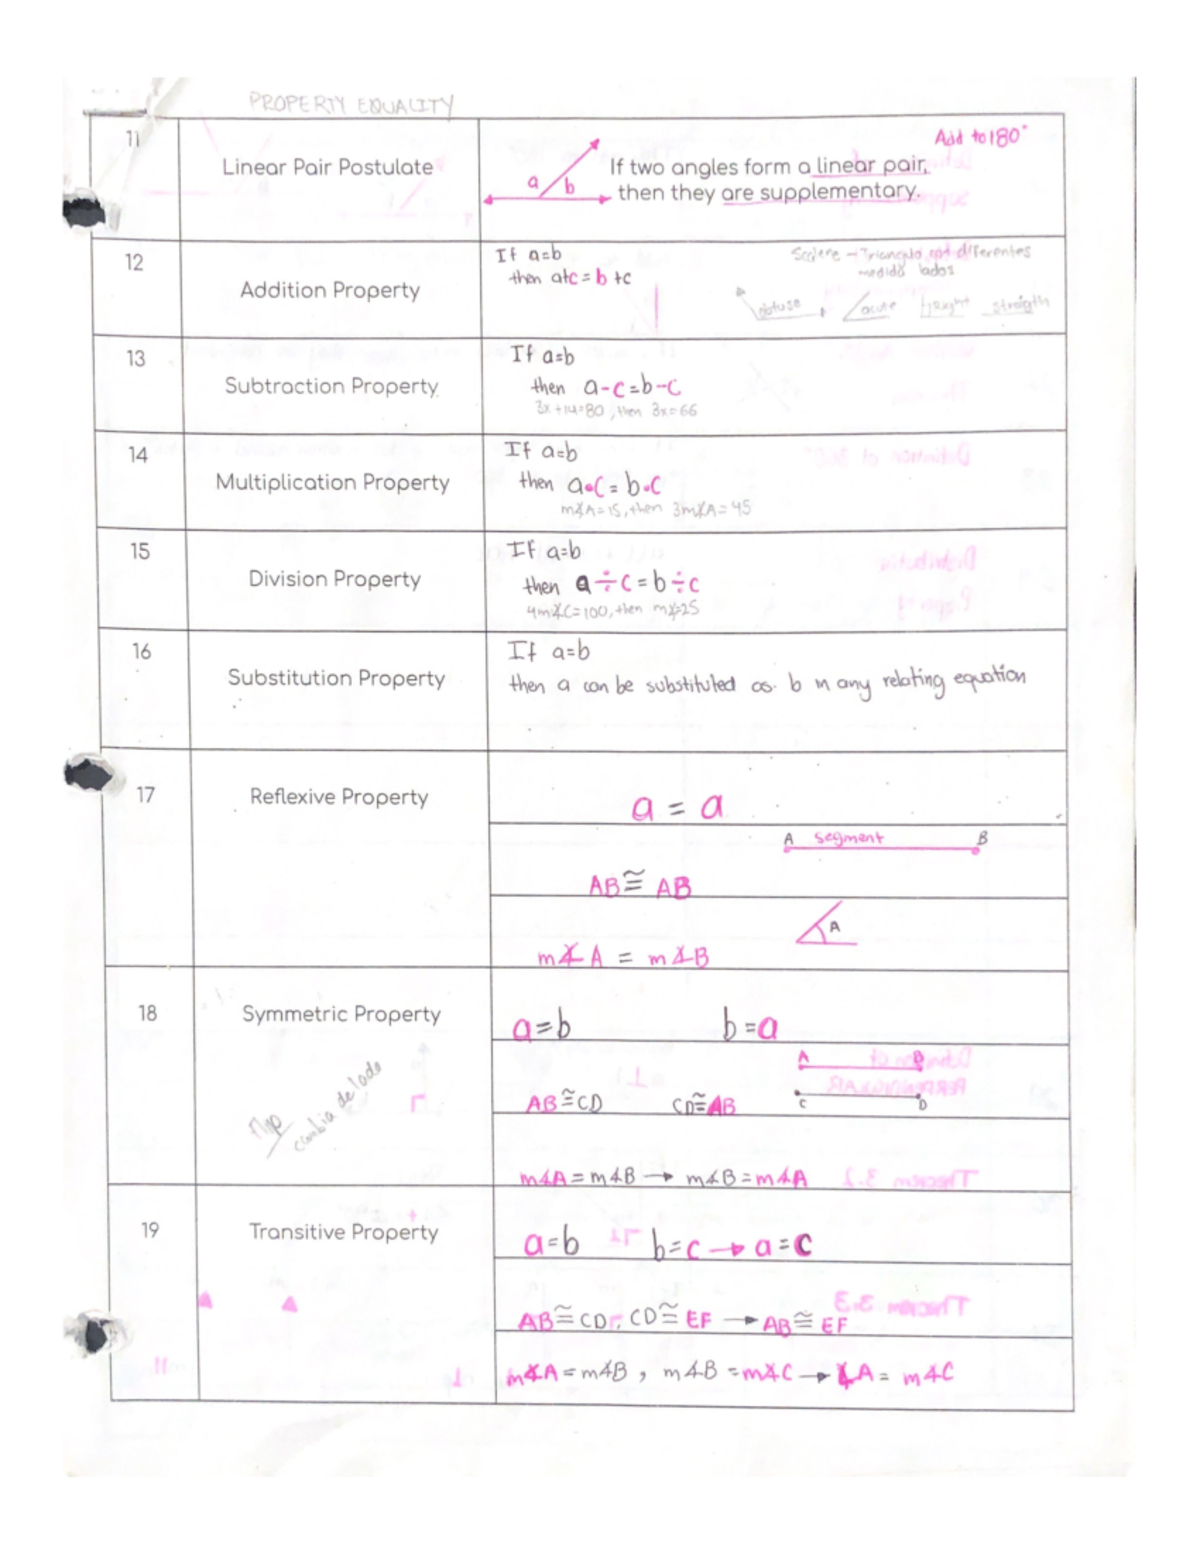 PROPERTY EQUALITY
11
Linear Pair Postulate
a b
Add to 180°
If two angles form a linear pair,
then they are supplementary.
12
Addition Property
If a=b
then a+c = b +c
Scalene - Triangulo con diferentes
medida lados
obtuse acute straigth
13
Subtraction Property
If a=b
then a-c=b-c
3x+14=80, then 3x=66
14
Multiplication Property
If a=b
then a•c = b•c
m∡A=15, then 3m∡A=45
15
Division Property
If a=b
then a÷c = b÷c
4m∡C=100, then m∡=25
16
Substitution Property
If a=b
then a can be substituted as b in any relating equation
17
Reflexive Property
a = a
A segment B
AB ≅ AB
A
m∡A = m∡B
18
Symmetric Property
a=b b=a
A B
AB≅CD CD≅AB
C D
cambia de lado
m∡A = m∡B → m∡B = m∡A
19
Transitive Property
a=b b=c → a=c
AB≅CD, CD≅EF → AB≅EF
m∡A = m∡B , m∡B = m∡C → ∡A = m∡C